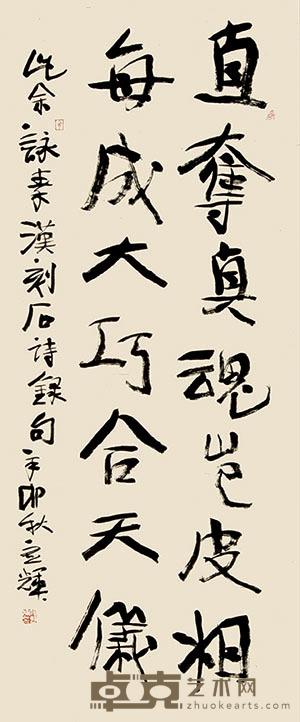 直奪真魂豈皮相
每成大巧合天儀
此余詠秦漢刻石詩錄句辛卯秋立輝
卓克艺术网
zhuokearts.com